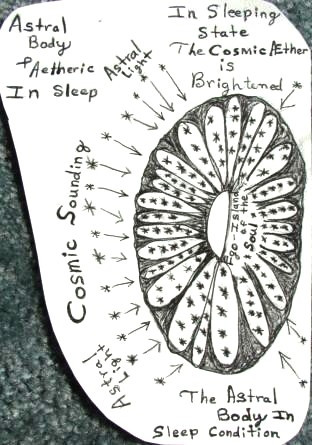 Astral
Body
+ Aetheric
In Sleep
Astral
Light
In Sleeping
State
The Cosmic Æther
is
Brightened
Cosmic Sounding
Ego-Island
of the
Soul
Astral
Light
The Astral
Body In
Sleep Condition